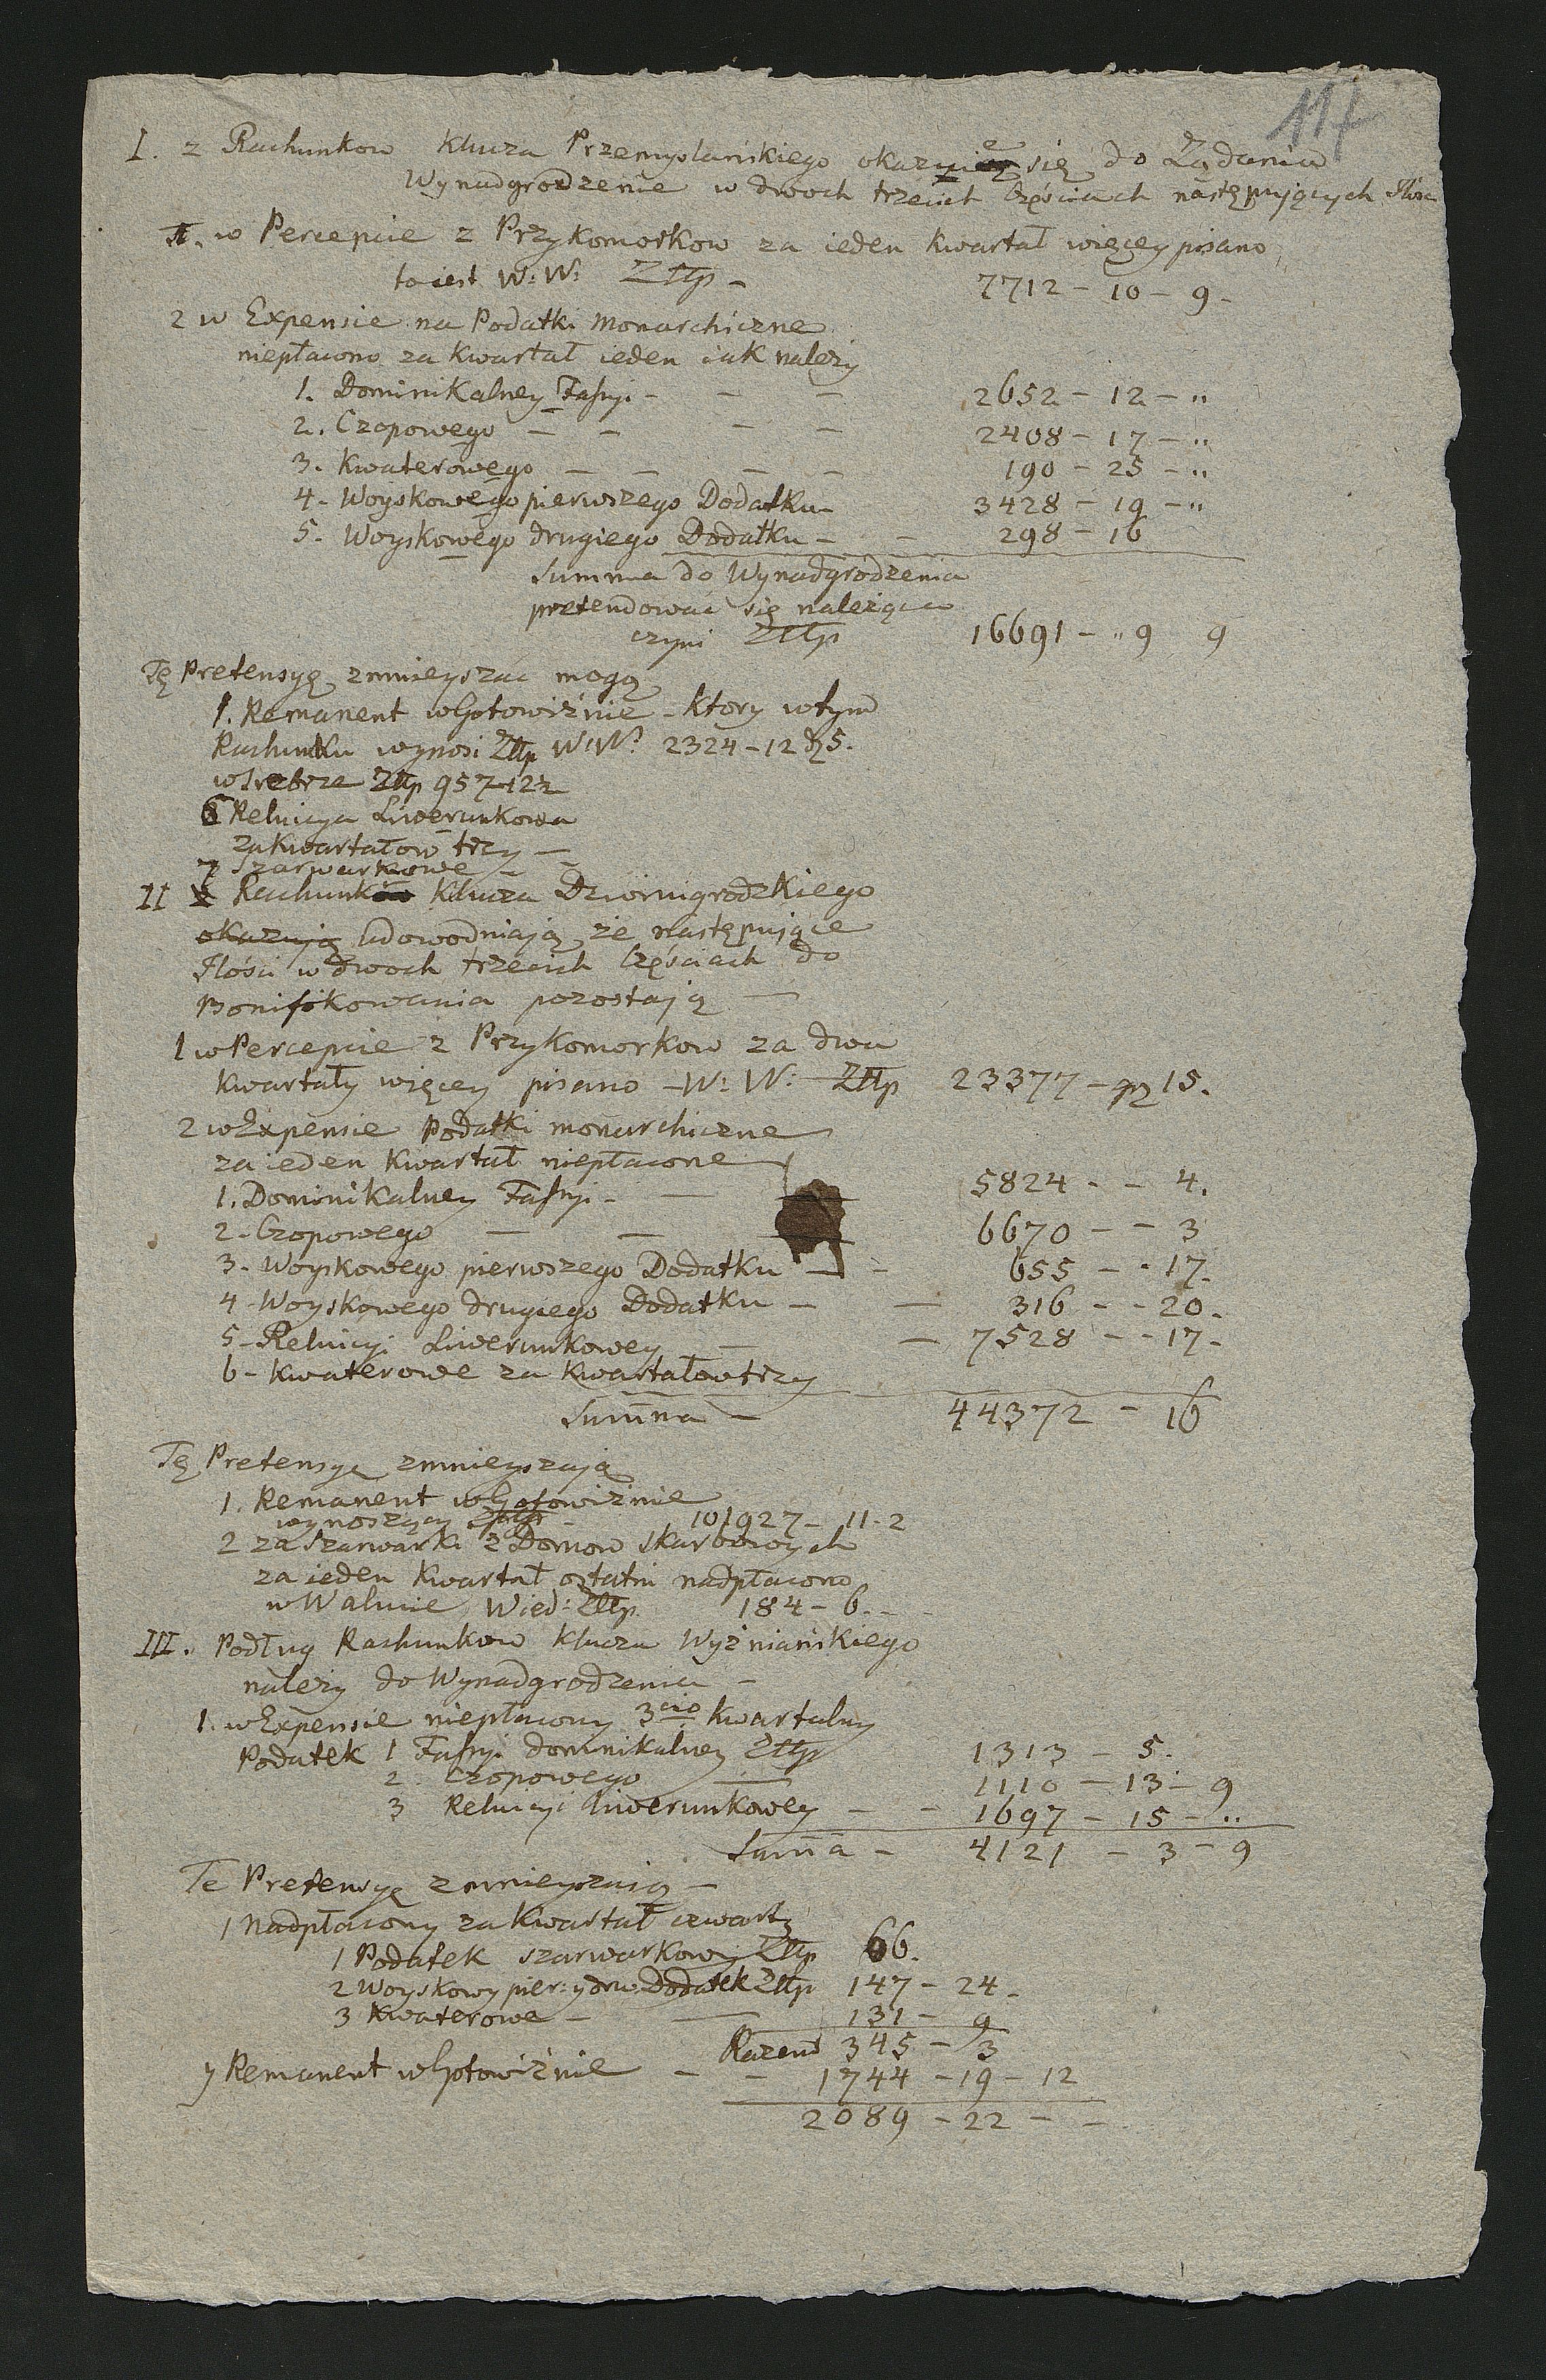 117
I. z Rachunkow Klucza Przemyslańskiego okazuie się do Żądania
Wynadgrodzenie w dwoch trzecich Częściach następuiących Ilość
1. w Percepcie z Przykomorkow za ieden kwartał więcey pisano
to iest W: W: Złłp - 7712 - 10 - 9 -
2 w Expensie na Podatki Monarchiczne
niepłacono za Kwartał ieden iak należy
1. Dominikalney Fassyi - - - 2652 - 12 - "
2. Czopowego - - - - 2408 - 17 - "
3. Kwaterowego - - - - 190 - 25 - "
4 - Woyskowego pierwszego Dodatku - 3428 - 19 - "
5. Woyskowego drugiego Dodatku - - 298 - 16
Summa do Wynadgrodzenia
pretendować się należąca
czyni Złłp 16691 - " 9 9
Tę Pretensyę zmnieyszać mogą
1. Remanent w Gotowiźnie - Ktory w tym
Rachunku wynosi Złłp W: W: 2324 - 12 d 5.
w Srebrze Złłp 957 - 12 2
6 Reluicya Liwerunkowa
za kwartałow trzy -
7 Szarwarkowe -
II Rachunki Klucza Dzwinigrodzkiego
okazuią Udowodniaią że następuiące
Ilości w dwoch trzecich Częściach do
Bonifikowania pozostaią -
1 w Percepcie z Przykomorkow za dwa
Kwartały więcey pisano - W: W: Złłp 23377 - gr 15.
2 w Expensie Podatki monarchiczne
za ieden Kwartał niepłacone
1. Dominikalney Fassyi - - 5824 - - 4.
2 - Czopowego - - 6670 - - 3
3 - Woyskowego pierwszego Dodatku - - 655 - - 17.
4 - Woyskowego drugiego Dodatku - - 316 - - 20.
5 - Reluicyi Liwerunkowey - - 7528 - - 17 -
6 - Kwaterowe za Kwartałow trzy
Summa - 44372 - 16
Tę Pretensyę zmnieyszaią
1. Remanent w Gotowiźnie
wynoszący Złłp - 101927 - 11 - 2
2 za Szarwarki z Domow skarbowych
za ieden Kwartał ostatni nadpłacono
w Walucie Wied: Złłp 184 - 6 - -
III. Podług Rachunkow Klucza Wyżniańskiego
należy do Wynadgrodzenia -
1. w Expensie niepłacony 3cio Kwartalny
Podatek 1 Fassyi dominikalney Złłp 1313 - 5.
2. Czopowego - 1110 - 13 - 9
3 Reluicyi Liwerunkowey - - 1697 - 15 - "
Summa - 4121 - 3 - 9
Te Pretensyę zmnieyszaią -
1 Nadpłacony za Kwartał czwarty
1 Podatek szarwarkowy Złłp 66.
2 Woyskowy pier: y dru: Dodatek Złłp 147 - 24 -
3 Kwaterowe - - 131 - 9
Razem 345 - 3
y Remanent w Gotowiźnie - - 1744 - 19 - 12
2089 - 22 - -